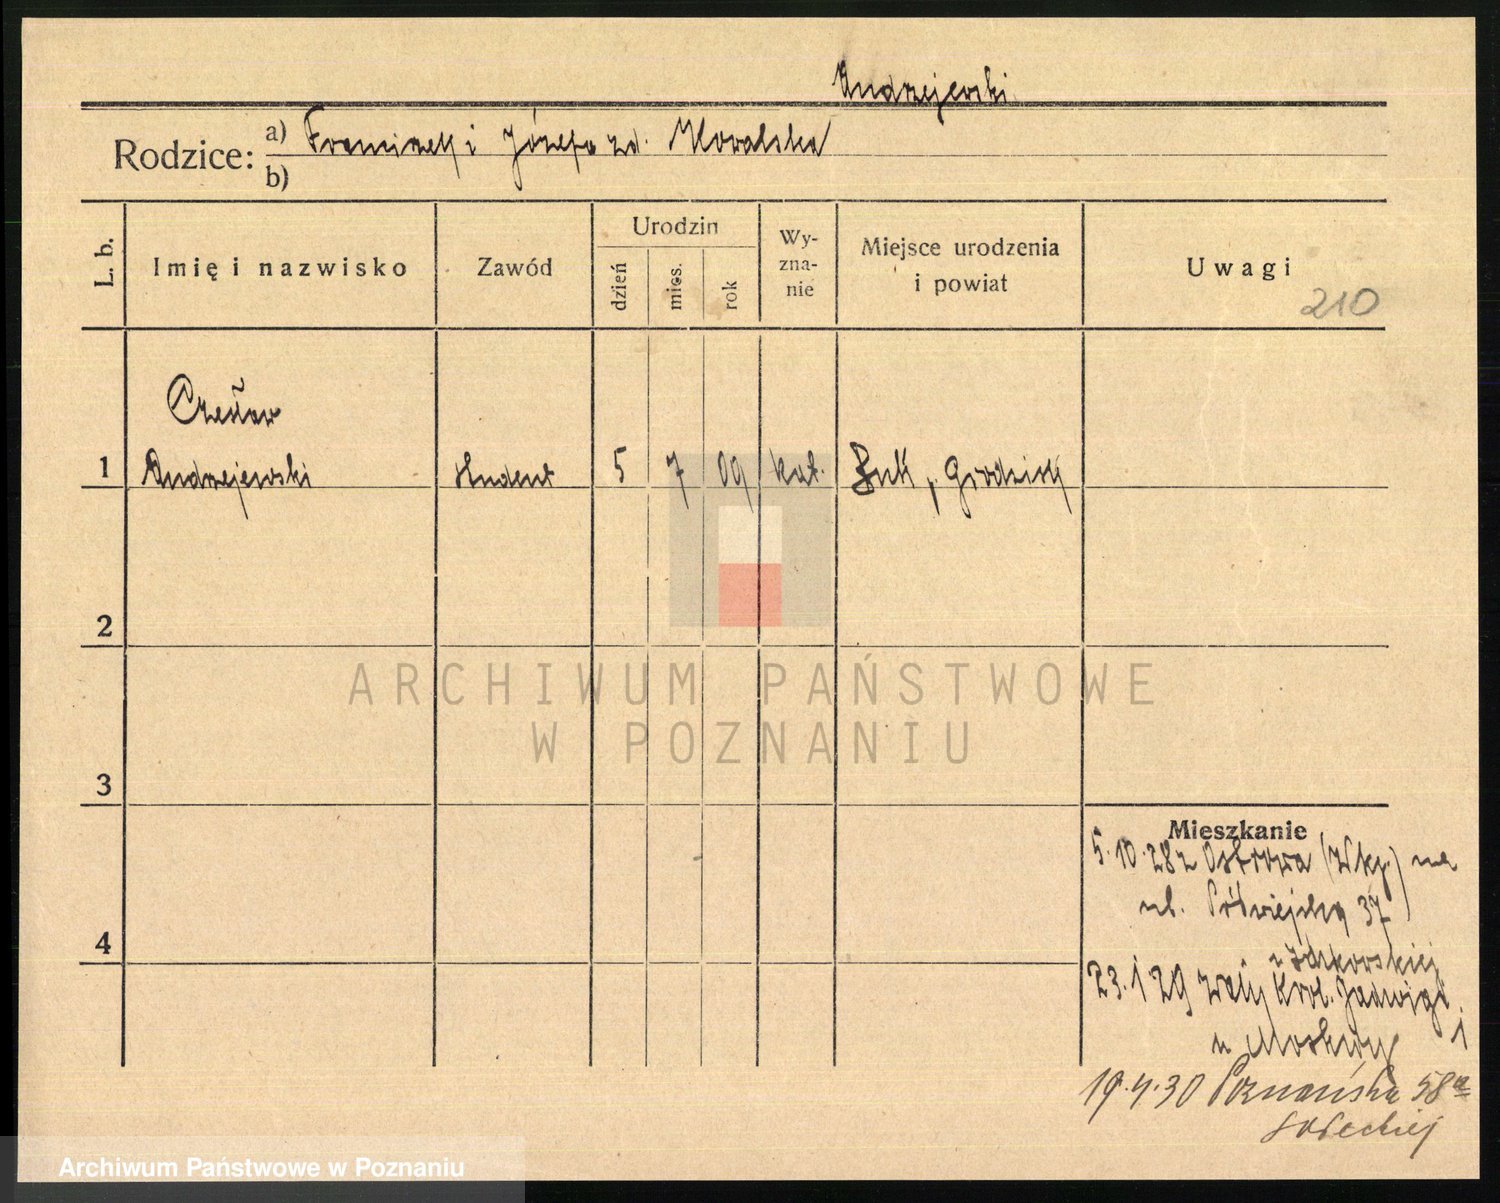 Andrzejewski
Rodzice: a) Franciszek i Józefa zd. Kowalska
b)
L. b.
Imię i nazwisko
Zawód
Urodzin
dzień
mies.
rok
Wy-
zna-
nie
Miejsce urodzenia
i powiat
Uwagi
210
Czesław
1 Andrzejewski student 5 7 09 kat. Buk, Grodzisk
2
3
4
ARCHIWUM PAŃSTWOWE
W POZNANIU
Mieszkanie
5.10.28 z Ostrowa (Wkp.) na
ul. Półwiejską 37
23.1 29 Wały Król. Jadwigi 1
u
19.4.30 Poznańska 58a
Archiwum Państwowe w Poznaniu